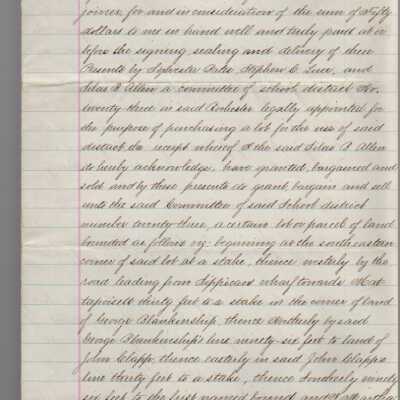 joiner, for and in consideration of the sum of Fifty
dollars to me in hand well and truly paid at or
before the signing sealing and delivery of these
Presents by Sylvester Bates, Stephen C. Luce, and
Silas B Allen a committee of school district No.
twenty three in said Rochester legally appointed for
the purpose of purchasing a lot for the use of said
district the receipt whereof I the said Silas B Allen
do hereby acknowledge, have granted, bargained and
sold and by these presents do grant, bargain and sell
unto the said Committee of said School district
number twenty three, a certain lot or parcel of land
bounded as follows viz: beginning at the southeastern
corner of said lot at a stake, thence westerly by the
road leading from Sippican wharf towards Mat-
tapoisett thirty feet to a stake in the corner of land
of George Blankinship, thence Northerly by said
George Blankinship's line ninety-six feet to land of
John Clapp, thence easterly in said John Clapp's
line thirty feet to a stake, thence Southerly ninety
six feet to the first named bound